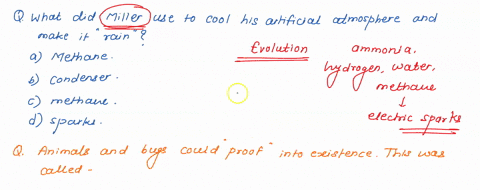 Q. What did Miller use to cool his artificial atmosphere and
make it "rain"?
a) Methane.
b) Condenser.
c) methane.
d) sparks.
Evolution
ammonia,
hydrogen, water,
methane
↓
electric sparks
Q. Animals and bugs could "proof" into existence. This was
called -